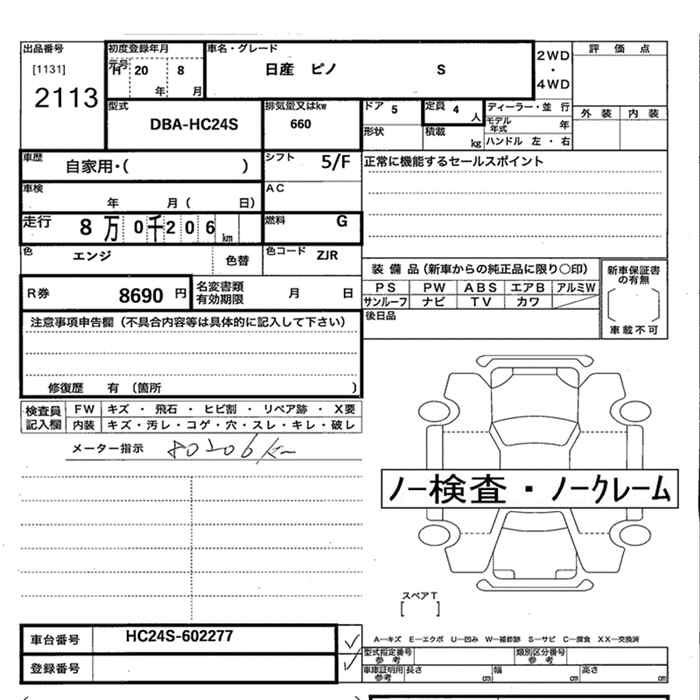 出品番号
[1131]
2113
初度登録年月
元号 H 20 年 8 月
車名・グレード
日産 ピノ S
2WD
・
4WD
評 価 点
外 装 内 装
型式
DBA-HC24S
排気量又はkw
660
ドア 5
形状
定員 4 人
積載 kg
ディーラー・並 行
モデル年式 年
ハンドル 左・右
車歴
自家用・( )
シフト 5/F
正常に機能するセールスポイント
車検
年 月( 日)
AC
走行 8万0千206km
燃料 G
色 エンジ 色替
色コード ZJR
R券 8690 円
名変書類
有効期限 月 日
装 備 品(新車からの純正品に限り○印)
PS PW ABS エアB アルミW
サンルーフ ナビ TV カワ
後日品
新車保証書
の有無
車載不可
注意事項申告欄(不具合内容等は具体的に記入して下さい)
修復歴 有 (箇所 )
検査員
記入欄
FW キズ ・ 飛石 ・ ヒビ割 ・ リペア跡 ・ X要
内装 キズ・汚レ・コゲ・穴・スレ・キレ・破レ
メーター指示 80206km
ノー検査・ノークレーム
スペアT
[ ]
車台番号 HC24S-602277 ✓
登録番号 ✓
A―キズ E―エクボ U―凹み W―補修跡 S―サビ C―腐食 XX―交換済
型式指定番号
参 考
類別区分番号
参 考
車庫証明用
参考
長さ cm 幅 cm 高さ cm